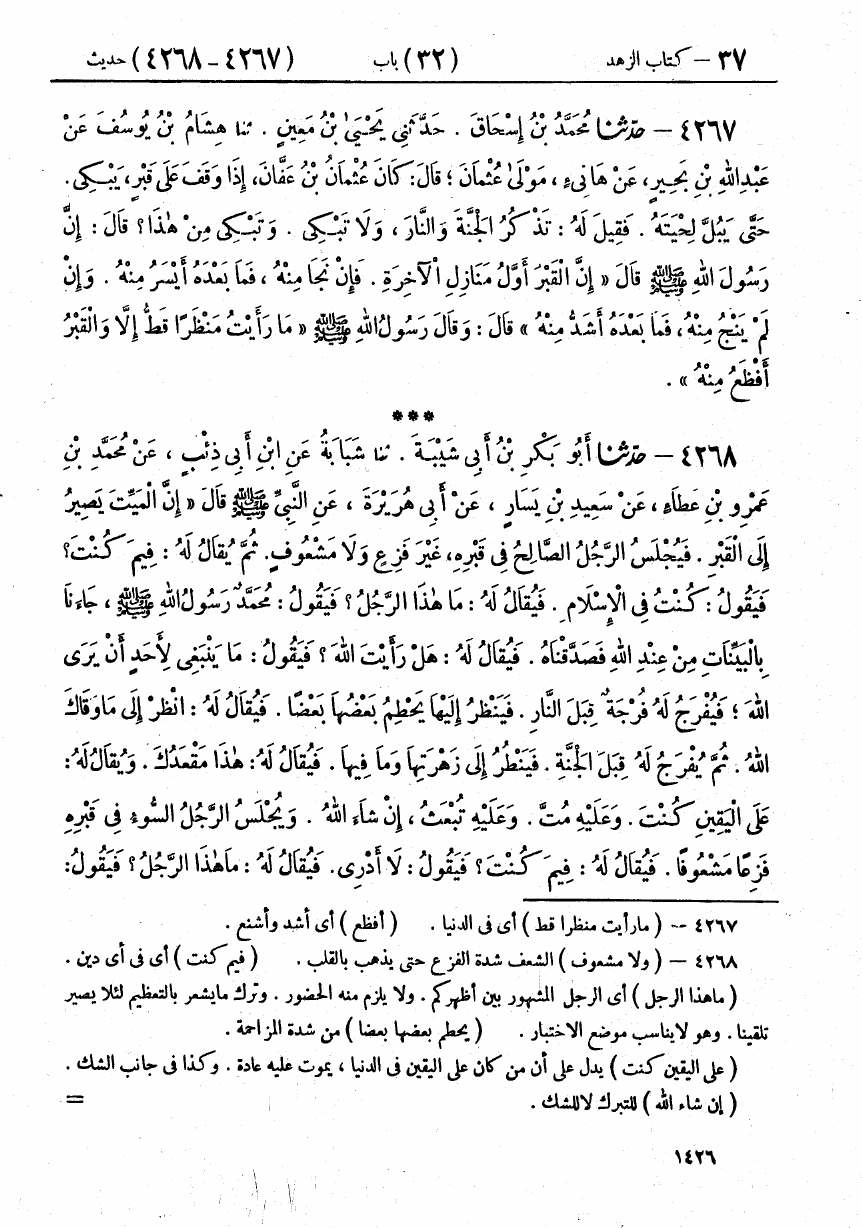 ٣٧ – كتاب الزهد (٣٢) باب (٤٢٦٧ – ٤٢٦٨) حديث
٤٢٦٧ – حدثنا مُحَمَّدُ بْنُ إِسْحَاقَ . حَدَّثَنِي يَحْيَىٰ بْنُ مَعِينٍ . ثنا هِشَامُ بْنُ يُوسُفَ عَنْ
عَبْدِ اللهِ بْنِ بَحِيرٍ، عَنْ هَانِيءٍ ، مَوْلَىٰ عُثْمَانَ ؛ قَالَ: كَانَ عُثْمَانُ بْنُ عَفَّانَ، إِذَا وَقَفَ عَلَى قَبْرٍ، يَبْكِي.
حَتَّى يَبُلَّ لِحْيَتَهُ . فَقِيلَ لَهُ : تَذْكُرُ الْجَنَّةَ وَالنَّارَ ، وَلَا تَبْكِي . وَتَبْكِي مِنْ هٰذَا؟ قَالَ : إِنَّ
رَسُولَ اللهِ ﷺ قَالَ « إِنَّ الْقَبْرَ أَوَّلُ مَنَازِلِ الْآخِرَةِ . فَإِنْ نَجَا مِنْهُ ، فَمَا بَعْدَهُ أَيْسَرُ مِنْهُ . وَإِنْ
لَمْ يَنْجُ مِنْهُ، فَمَا بَعْدَهُ أَشَدُّ مِنْهُ » قَالَ : وَقَالَ رَسُولُ اللهِ ﷺ « مَا رَأَيْتُ مَنْظَرًا قَطُّ إِلَّا وَالْقَبْرُ
أَفْظَعُ مِنْهُ » .
***
٤٢٦٨ – حدثنا أَبُو بَكْرِ بْنُ أَبِي شَيْبَةَ . ثنا شَبَابَةُ عَنِ ابْنِ أَبِي ذِئْبٍ ، عَنْ مُحَمَّدِ بْنِ
عَمْرِو بْنِ عَطَاءٍ، عَنْ سَعِيدِ بْنِ يَسَارٍ ، عَنْ أَبِي هُرَيْرَةَ ، عَنِ النَّبِيِّ ﷺ قَالَ « إِنَّ الْمَيِّتَ يَصِيرُ
إِلَى الْقَبْرِ . فَيُجْلَسُ الرَّجُلُ الصَّالِحُ فِي قَبْرِهِ، غَيْرَ فَزِعٍ وَلَا مَشْعُوفٍ. ثُمَّ يُقَالُ لَهُ : فِيمَ كُنْتَ؟
فَيَقُولُ : كُنْتُ فِي الْإِسْلَامِ . فَيُقَالُ لَهُ : مَا هٰذَا الرَّجُلُ؟ فَيَقُولُ : مُحَمَّدٌ رَسُولُ اللهِ ﷺ ، جَاءَنَا
بِالْبَيِّنَاتِ مِنْ عِنْدِ اللهِ فَصَدَّقْنَاهُ . فَيُقَالُ لَهُ : هَلْ رَأَيْتَ اللهَ ؟ فَيَقُولُ : مَا يَنْبَغِي لِأَحَدٍ أَنْ يَرَى
اللهَ ؛ فَيُفْرَجُ لَهُ فُرْجَةٌ قِبَلَ النَّارِ . فَيَنْظُرُ إِلَيْهَا يَحْطِمُ بَعْضُهَا بَعْضًا . فَيُقَالُ لَهُ : انْظُرْ إِلَى مَا وَقَاكَ
اللهُ . ثُمَّ يُفْرَجُ لَهُ قِبَلَ الْجَنَّةِ . فَيَنْظُرُ إِلَى زَهْرَتِهَا وَمَا فِيهَا . فَيُقَالُ لَهُ: هٰذَا مَقْعَدُكَ . وَيُقَالُ لَهُ:
عَلَى الْيَقِينِ كُنْتَ . وَعَلَيْهِ مُتَّ . وَعَلَيْهِ تُبْعَثُ ، إِنْ شَاءَ اللهُ . وَيُجْلَسُ الرَّجُلُ السُّوءُ فِي قَبْرِهِ
فَزِعًا مَشْعُوفًا . فَيُقَالُ لَهُ : فِيمَ كُنْتَ؟ فَيَقُولُ : لَا أَدْرِي. فَيُقَالُ لَهُ : مَا هٰذَا الرَّجُلُ؟ فَيَقُولُ:
٤٢٦٧ -- ( ما رأيت منظرا قط ) أى فى الدنيا . ( أفظع ) أى أشد وأشنع .
٤٢٦٨ – ( ولا مشعوف ) الشعف شدة الفزع حتى يذهب بالقلب . ( فيم كنت ) أى فى أى دين .
( ما هذا الرجل ) أى الرجل المشهور بين أظهركم . ولا يلزم منه الحضور . وترك ما يشعر بالتعظيم لئلا يصير
تلقينا . وهو لا يناسب موضع الاختبار . ( يحطم بعضها بعضا ) من شدة المزاحمة .
( على اليقين كنت ) يدل على أن من كان على اليقين فى الدنيا ، يموت عليه عادة . وكذا فى جانب الشك .
( إن شاء الله ) للتبرك لا للشك . =
١٤٢٦